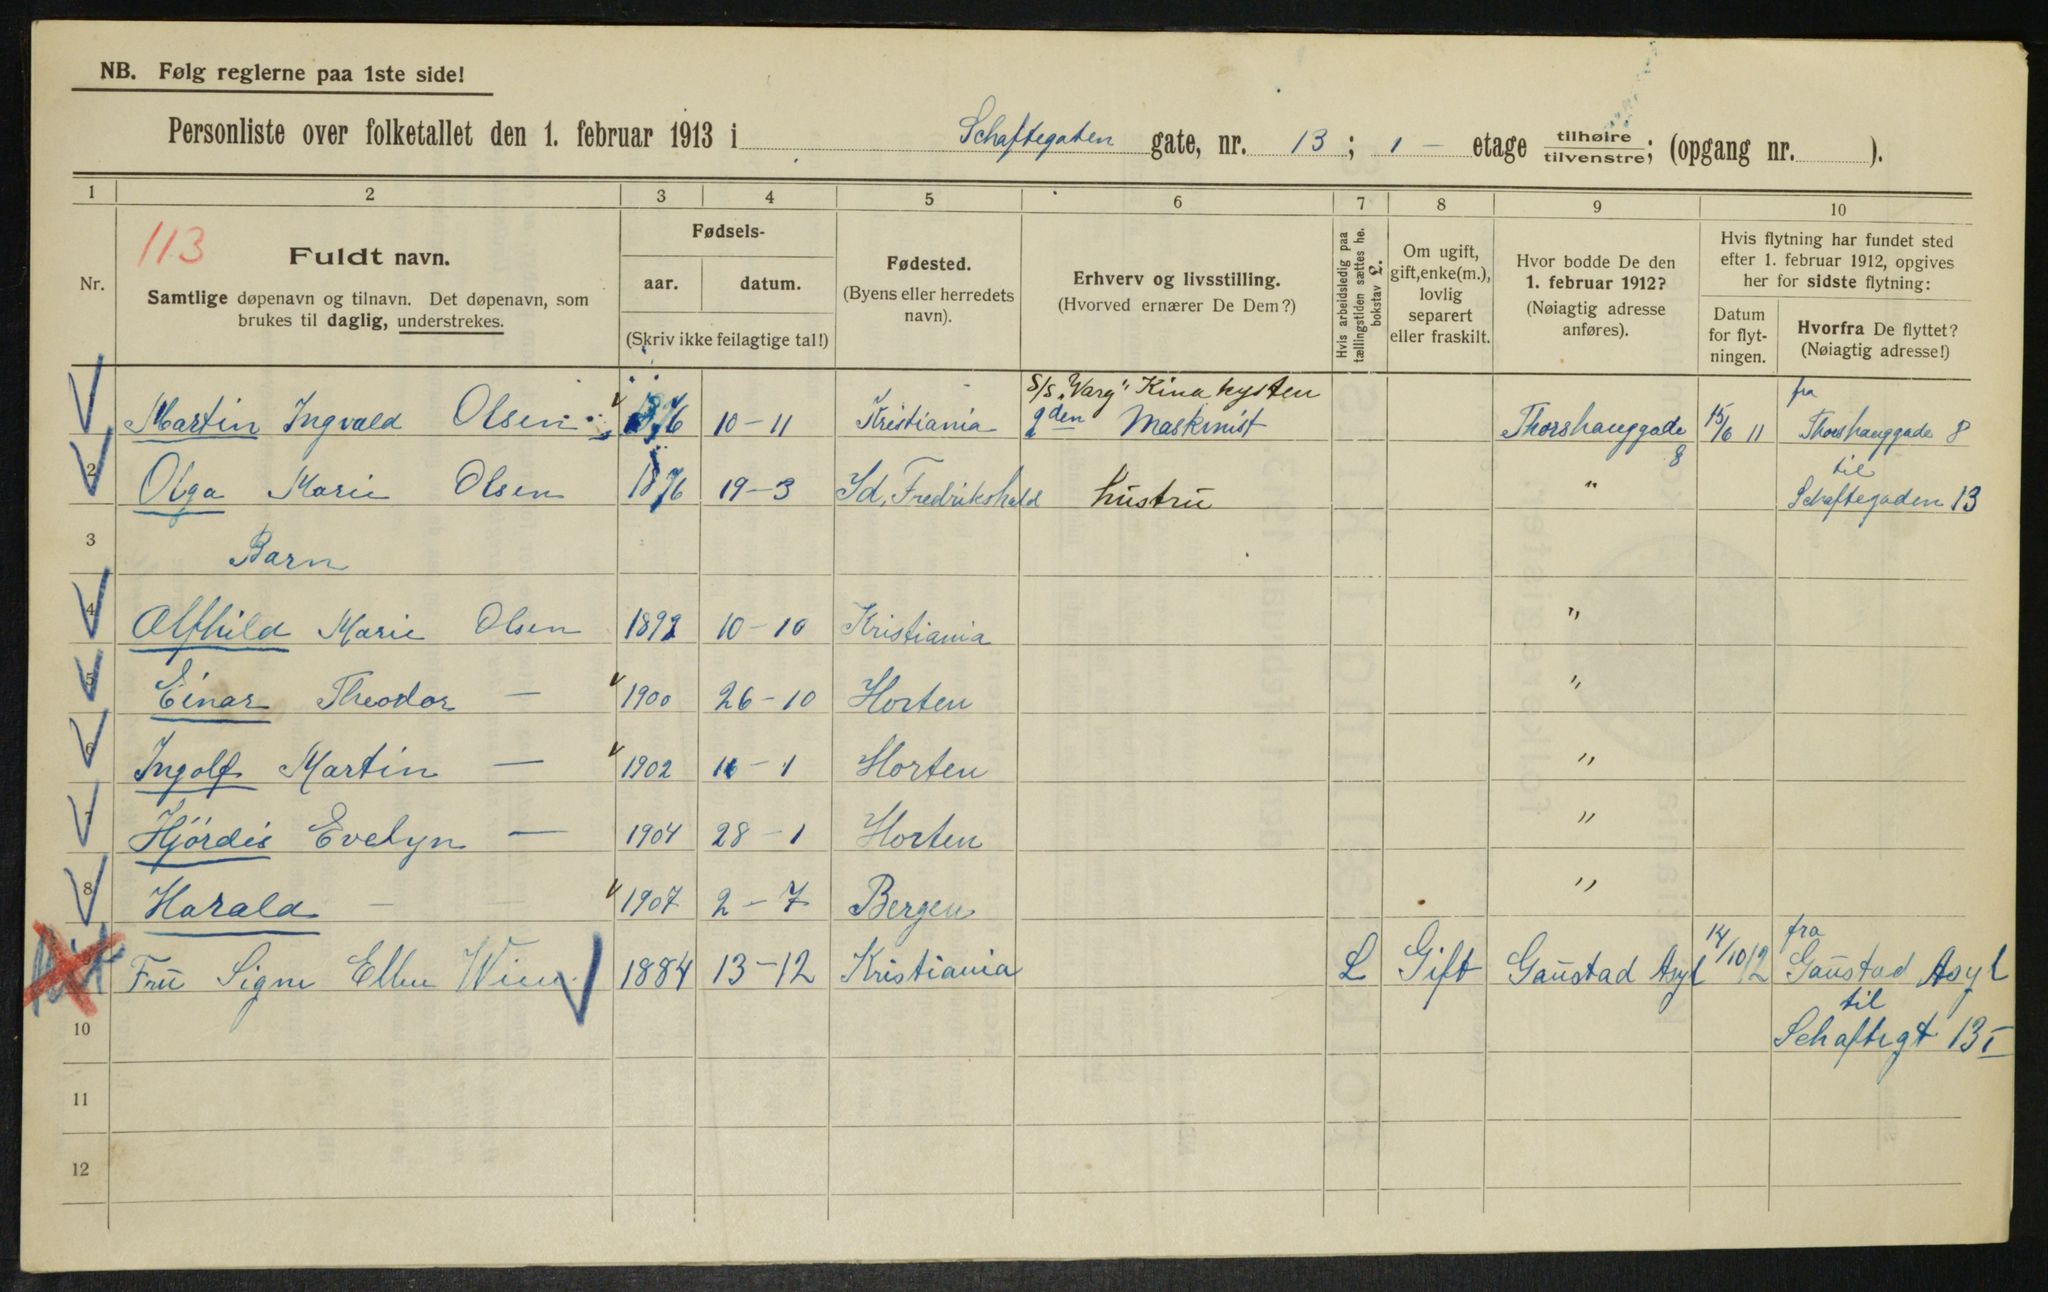 NB. Følg reglerne paa 1ste side!
Personliste over folketallet den 1. februar 1913 i Schaftegaten gate, nr. 13; 1 – etage tilhøire tilvenstre; (opgang nr. ).
1 2 3 4 5 6 7 8 9 10
113
Nr.
Fuldt navn.
Samtlige døpenavn og tilnavn. Det døpenavn, som
brukes til daglig, understrekes.
Fødsels-
aar. datum.
(Skriv ikke feilagtige tal!)
Fødested.
(Byens eller herredets
navn).
Erhverv og livsstilling.
(Hvorved ernærer De Dem?)
Hvis arbeidsledig paa
tællingstiden sættes he.
bokstav L.
Om ugift,
gift, enke(m.),
lovlig
separert
eller fraskilt.
Hvor bodde De den
1. februar 1912?
(Nøiagtig adresse
anføres).
Hvis flytning har fundet sted
efter 1. februar 1912, opgives
her for sidste flytning:
Datum
for flyt-
ningen.
Hvorfra De flyttet?
(Nøiagtig adresse!)
S/S „Varg" Kina kysten fra
Martin Ingvald Olsen 1876 10–11 Kristiania 2den Maskinist Thorshauggade 8 15/6 11 Thorshauggade 8
til
2 Olga Marie Olsen 1876 19–3 Id, Fredrikshald hustru " Schaftegaden 13
3 Barn
4 Alfhild Marie Olsen 1892 10–10 Kristiania "
5 Einar Theodor — 1900 26–10 Horten "
6 Ingolf Martin — 1902 16–1 Horten "
7 Hjördis Evelyn — 1904 28–1 Horten "
8 Harald — — 1907 2–7 Bergen "
fra
9 Fru Signe Ellen 1884 13–12 Kristiania L Gift Gaustad Asyl 14/10 12 Gaustad Asyl
til
10 Schaftegt 13 I
11
12